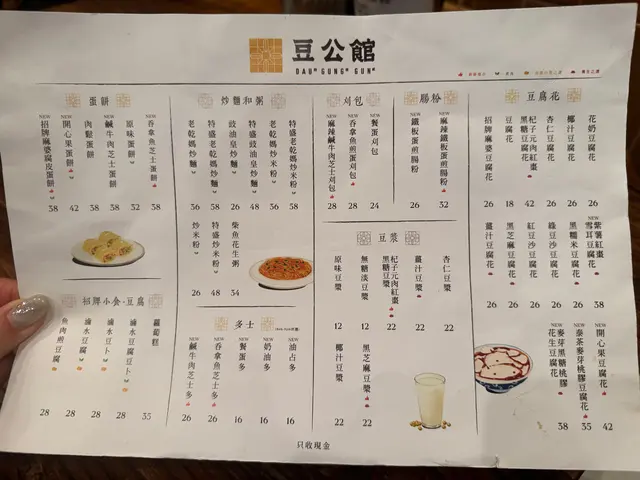 豆公館
DAUᴴ GUNGᴴ GUNᴴ
蛋餅
NEW 吞拿魚芝士蛋餅 38
原味蛋餅 32
NEW 鹹牛肉芝士蛋餅 38
肉鬆蛋餅 38
NEW 開心果蛋餅 42
NEW 招牌麻婆腐皮蛋餅 38
炒麵和粥
特盛老乾媽炒米粉 58
老乾媽炒米粉 36
特盛豉油皇炒麵 48
豉油皇炒麵 26
特盛老乾媽炒麵 58
老乾媽炒麵 36
柴魚花生粥 34
特盛炒米粉 48
炒米粉 26
刈包
餐蛋刈包 24
NEW 吞拿魚煎蛋刈包 28
NEW 麻辣鹹牛肉芝士刈包 28
腸粉
NEW 麻辣鐵板蛋煎腸粉 32
NEW 鐵板蛋煎腸粉 26
豆腐花
花奶豆腐花 26
椰汁豆腐花 26
杏仁豆腐花 26
杞子元肉紅棗豆腐花 42
豆腐花 18
招牌麻婆豆腐花 26
NEW 紫薯紅棗雪耳豆腐花 38
黑糯米豆腐花 26
綠豆沙豆腐花 26
紅豆沙豆腐花 26
黑芝麻豆腐花 26
薑汁豆腐花 26
NEW 開心果豆腐花 42
NEW 泰茶麥芽桃膠豆腐花 35
NEW 麥芽黑糖桃膠花生豆腐花 38
豆漿
杏仁豆漿 22
薑汁豆漿 22
杞子元肉紅棗黑糖豆漿 22
無糖淡豆漿 12
原味豆漿 12
黑芝麻豆漿 22
椰汁豆漿 22
招牌小食-豆腐
蘿蔔糕 35
滷水豆腐豆卜 28
滷水豆卜 28
滷水豆腐 28
魚肉煎豆腐 28
多士
NEW 油占多 16
NEW 奶油多 16
NEW 餐蛋多 16
NEW 吞拿魚芝士多 26
NEW 鹹牛肉芝士多 26
只收現金